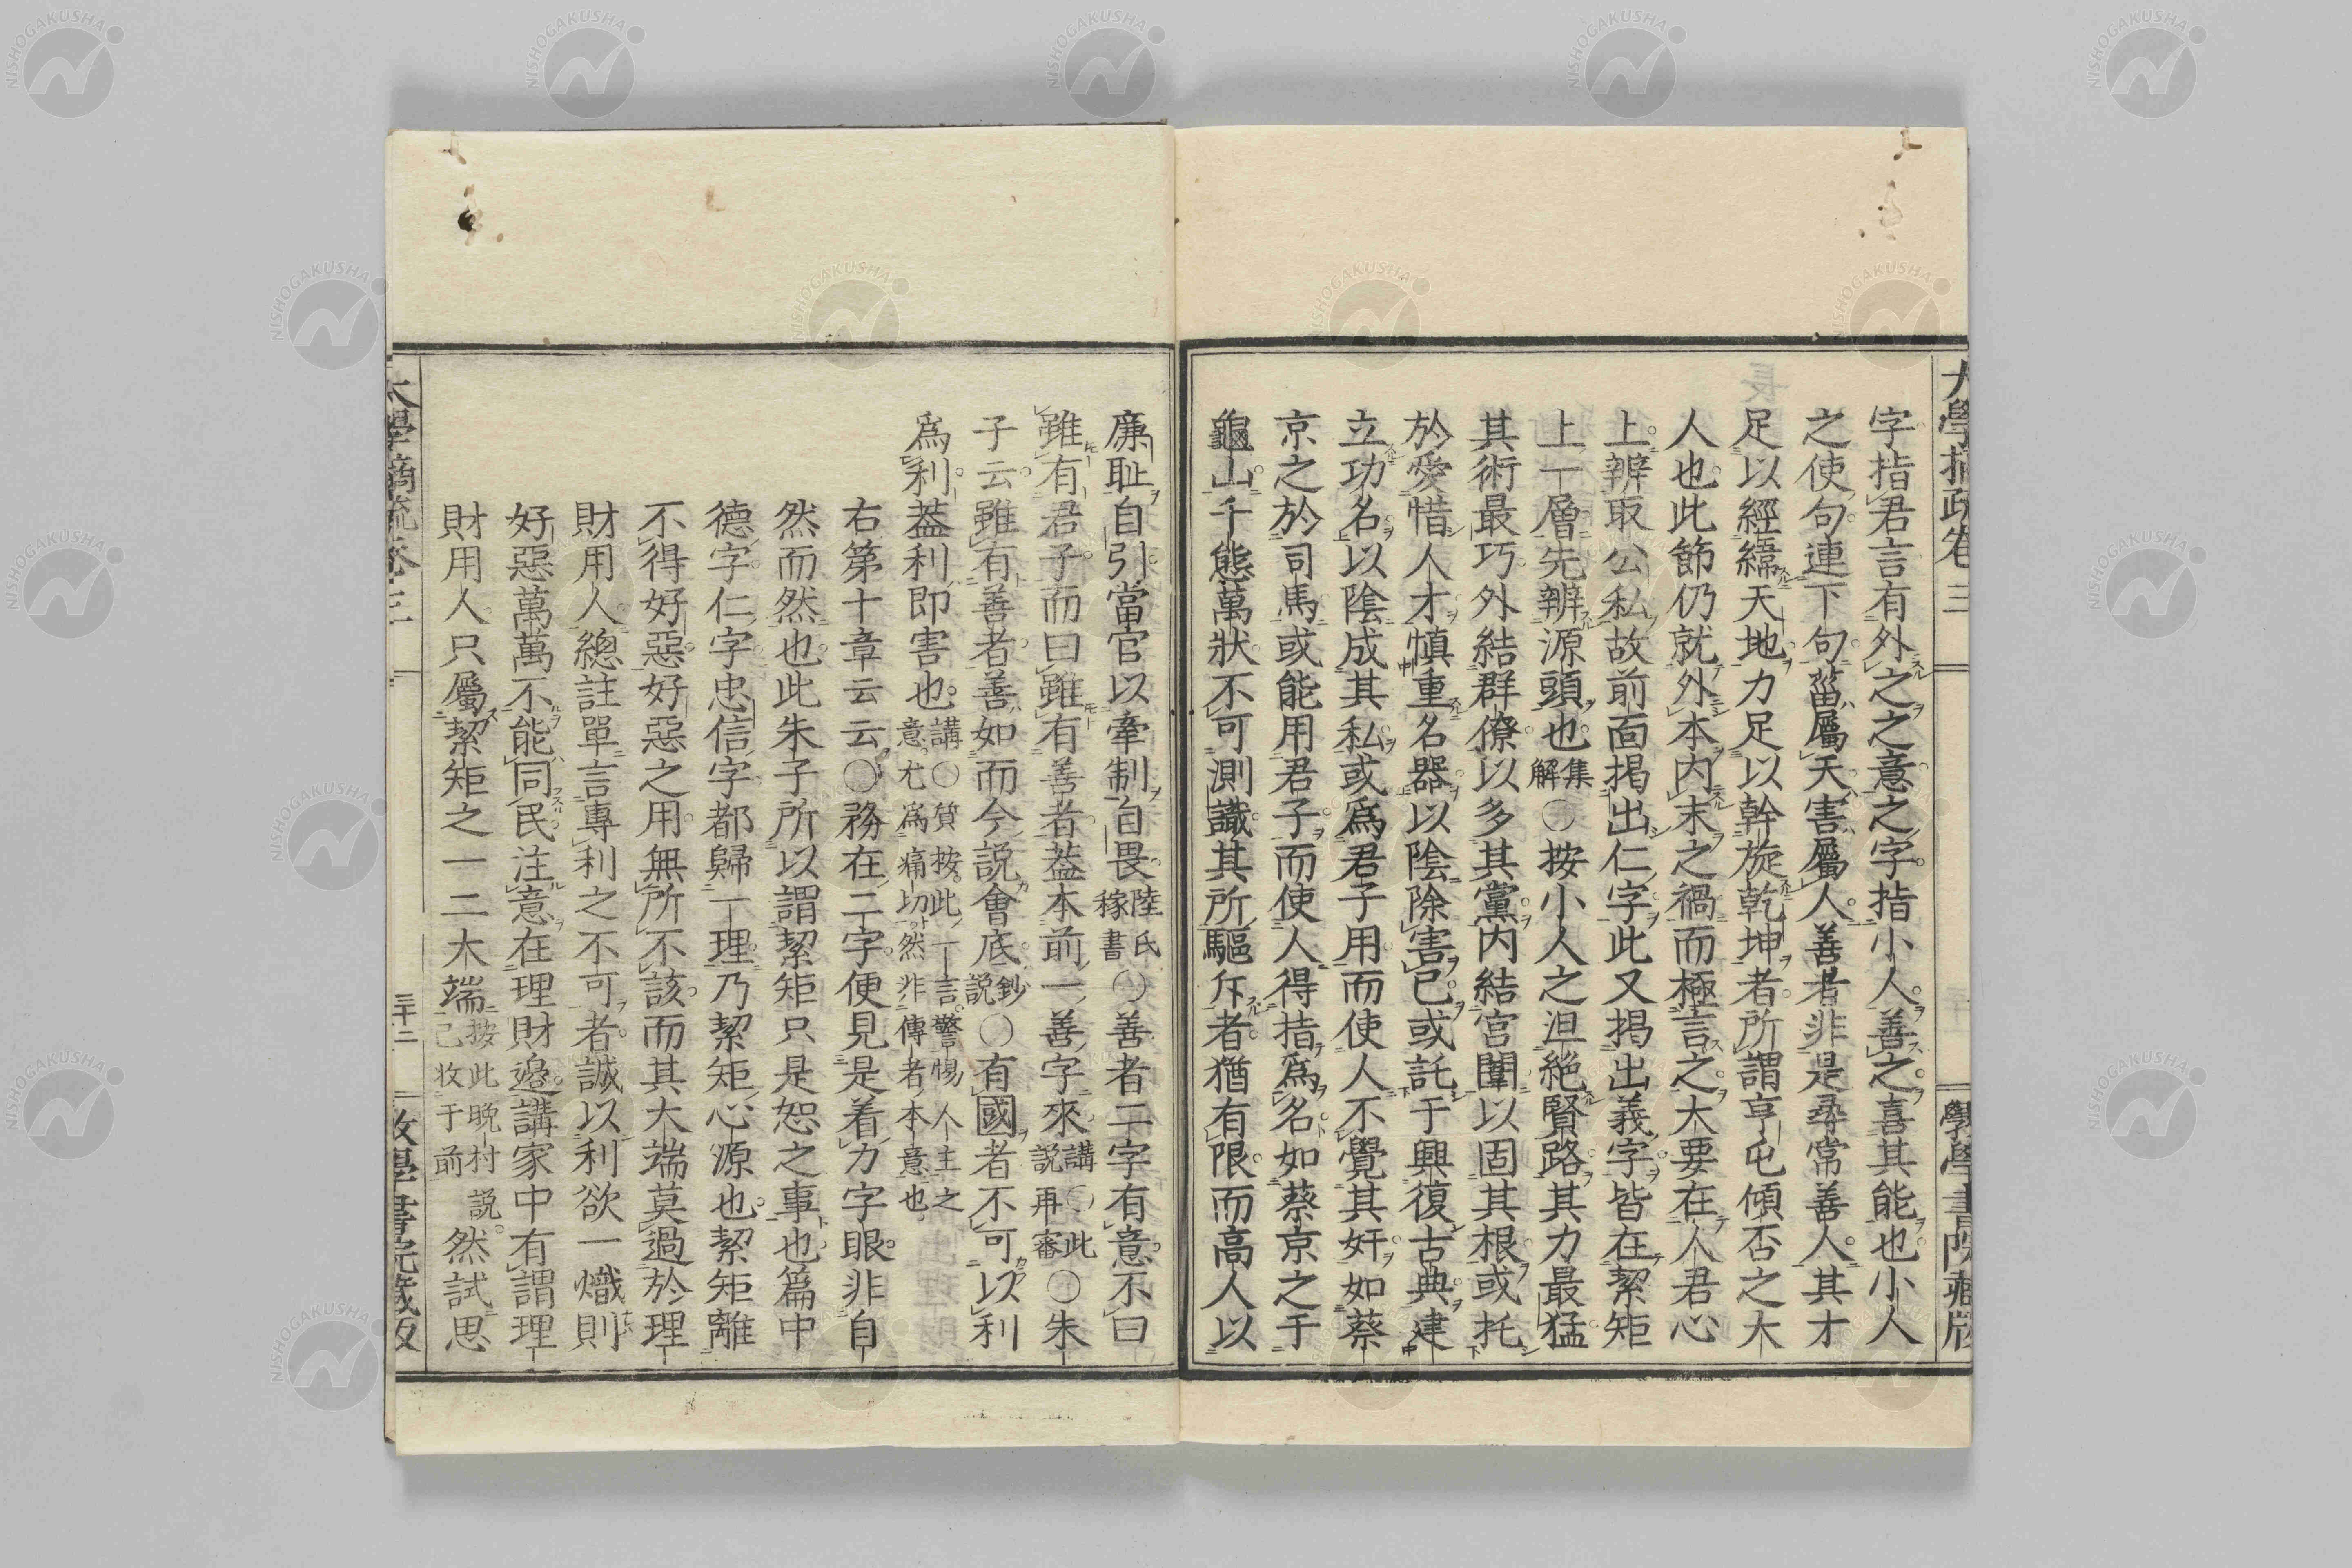 大學摘疏卷三
斅學書院藏版
字指君言有外之之意之字指小人善之喜其能也小人
之使句連下句菑屬天害屬人善者非是尋常善人其才
足以經緯天地力足以幹旋乾坤者所謂亨屯傾否之大
人也此節仍就外本內末之禍而極言之大要在人君心
上辨取公私故前面揭出仁字此又揭出義字皆在絜矩
上一層先辨源頭也集解○按小人之沮絕賢路其力最猛
其術最巧外結群僚以多其黨內結宮闈以固其根或托
於愛惜人才慎重名器以陰除害已或託于興復古典建
立功名以陰成其私或為君子用而使人不覺其奸如蔡
京之於司馬或能用君子而使人得指為名如蔡京之于
龜山千態萬狀不可測識其所驅斥者猶有限而高人以
廉恥自引當官以牽制自畏陸氏稼書○善者二字有意不曰
雖有君子而曰雖有善者葢本前一善字來講○此説再審○朱
子云雖有善者善如而今説會底鈔説○有國者不可以利
為利葢利即害也講○質按此一言警惕人主之意尤為痛切然非傳者本意也
右第十章云云○務在二字便見是着力字眼非自
然而然也此朱子所以謂絜矩只是恕之事也篇中
德字仁字忠信字都歸一理乃絜矩心源也絜矩離
不得好惡好惡之用無所不該而其大端莫過於理
財用人總註單言專利之不可者誠以利欲一熾則
好惡萬萬不能同民注意在理財邊講家中有謂理
財用人只屬絜矩之一二大端按此晚村説已收于前然試思
大學摘疏卷三
三十二
斅學書院藏版